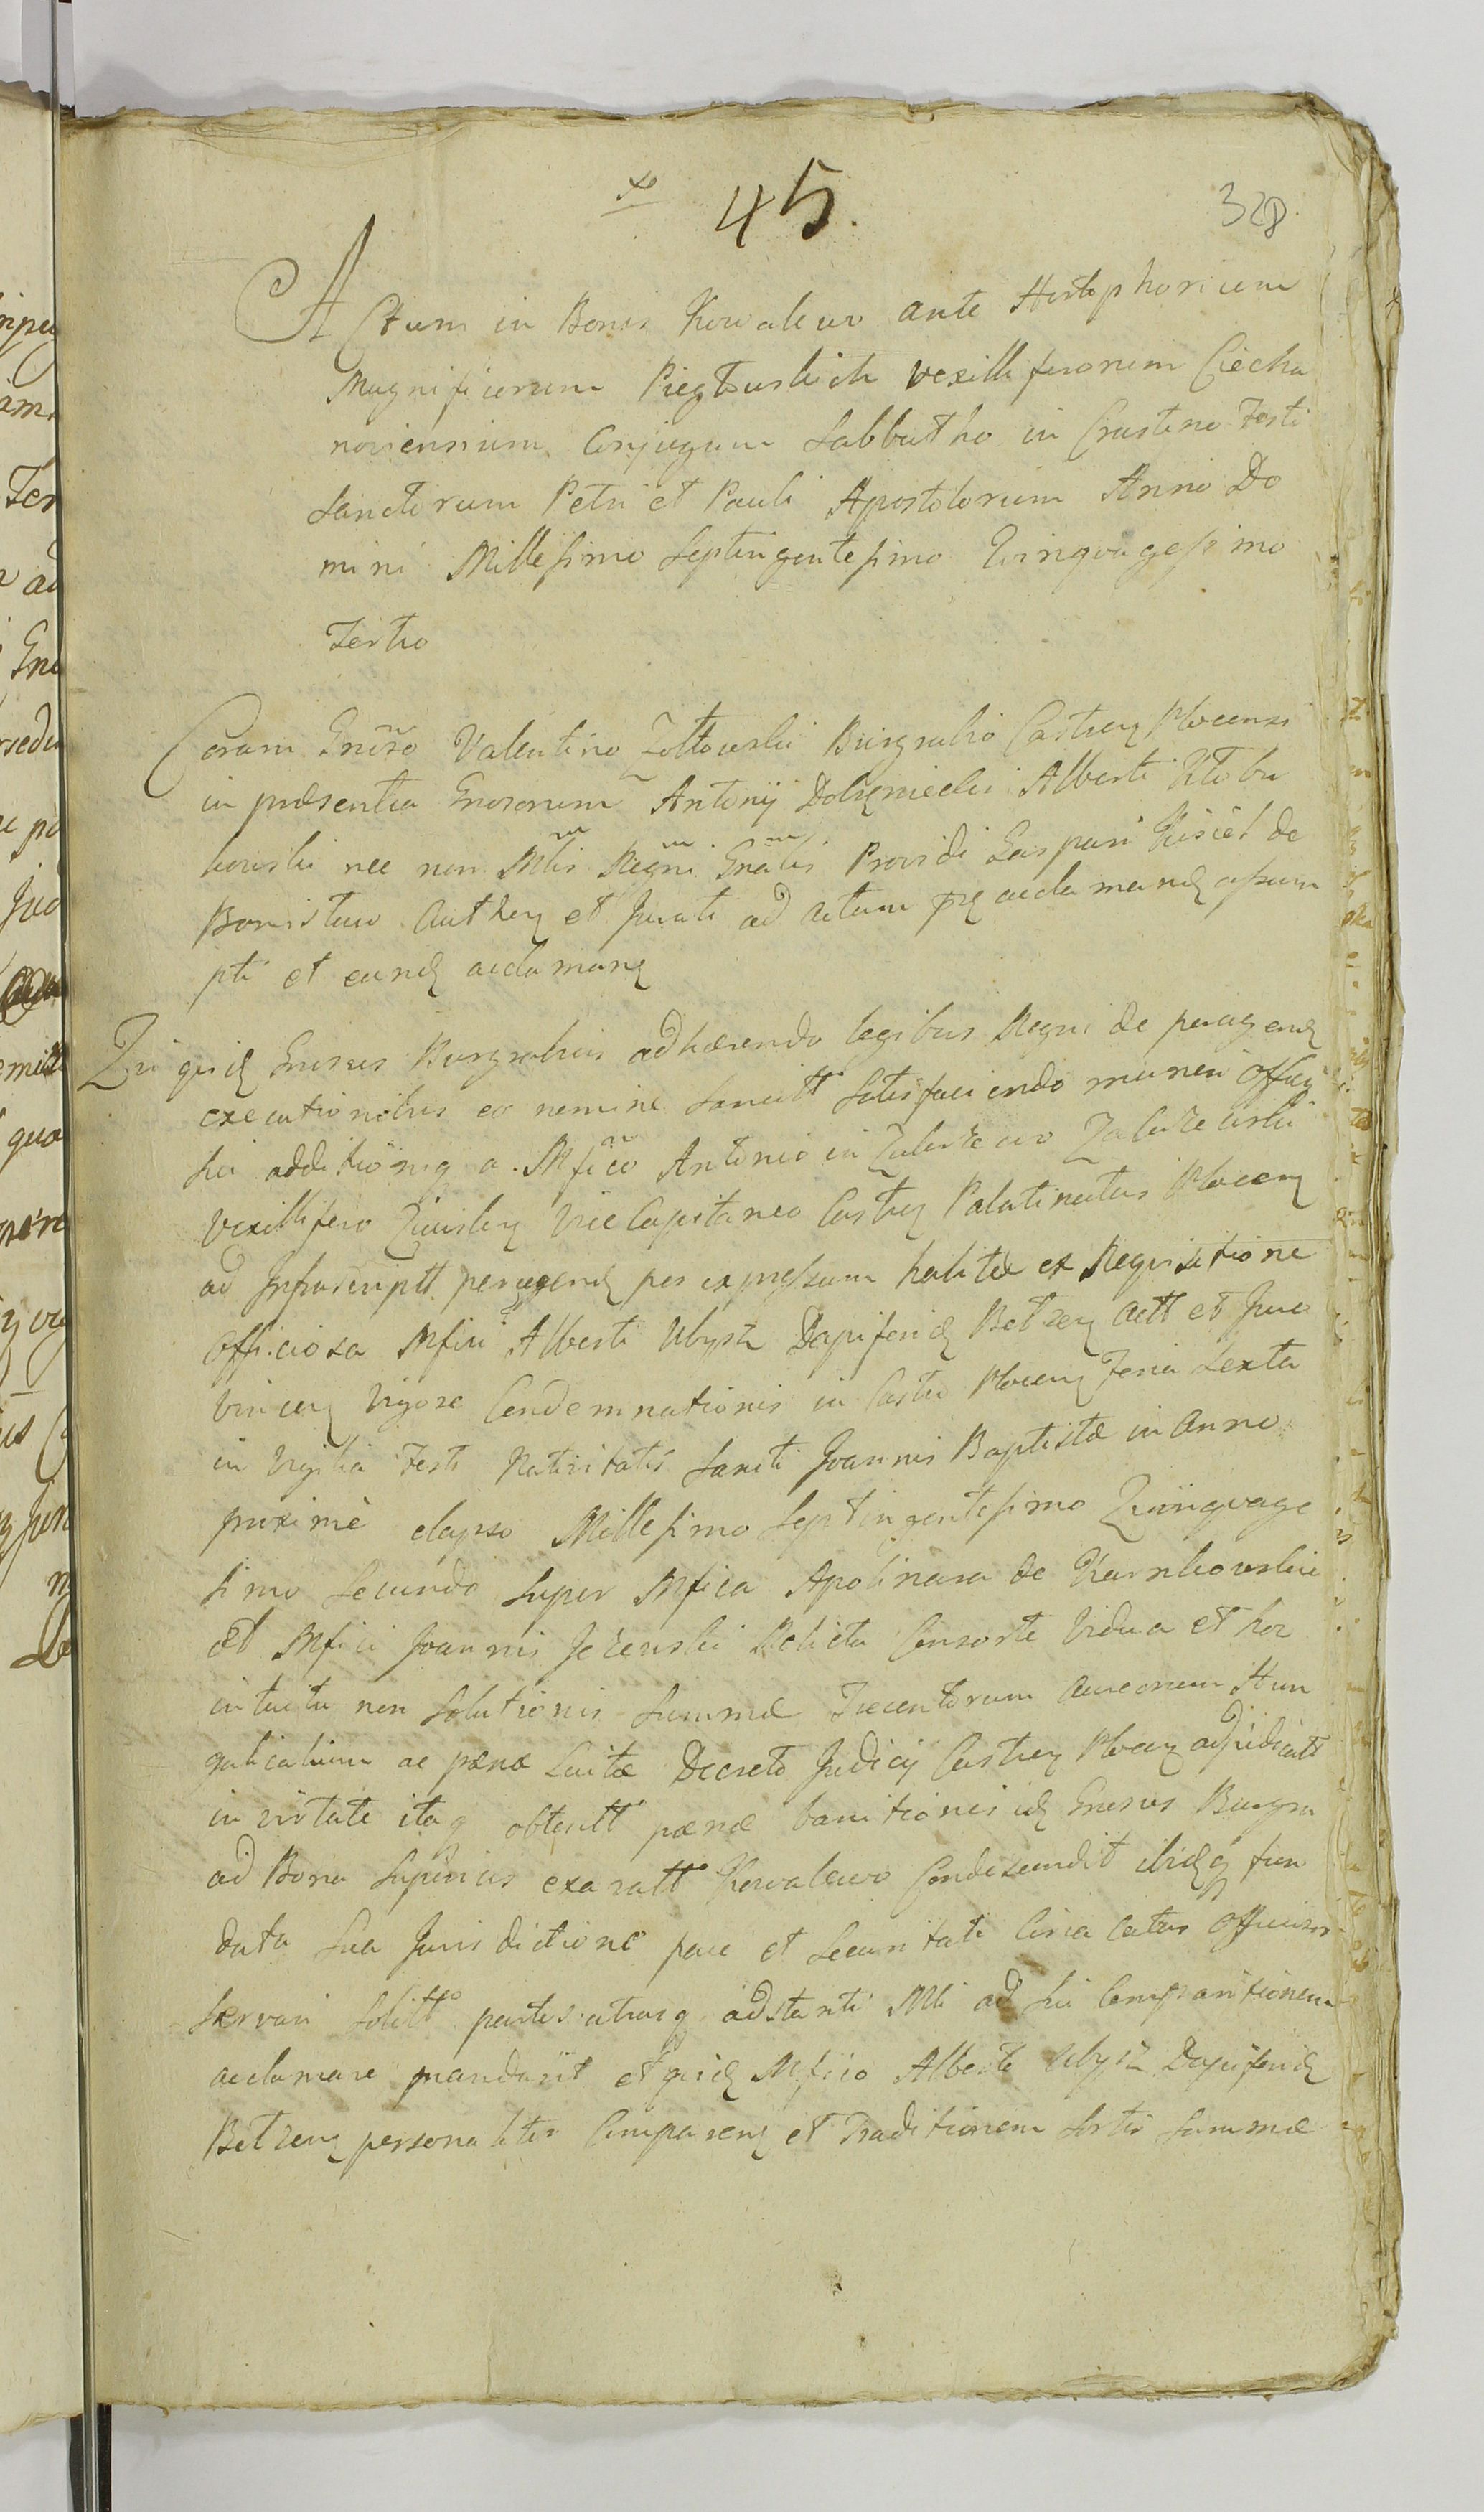 45.
328
Actum in Bonis Kowalewo ante Hostophorium
Magnificorum Pięgłowskich Vexilliferorum Ciecha
noviensium Conjugum Sabbatho in Crastino Festi
Sanctorum Petri et Pauli Apostolorum Anno Do
mini Millesimo Septingentesimo Quinquagesimo
Tertio
Coram Gnrso Valentino Zołtowski Burgrabio Castren Plocensi
in præsentia Gnrosorum Antonij Dobrzniecki Alberti Kłobu
kowski nec non Mlis Regni Gnalis Providi Caspari Kisiel de
Bonisław authen et Jurati ad actum præ acclamand assum
pti et eund acclaman
Qui quid Gnrsus Burgrabius adhærendo legibus Regni de peragend
executionibus eo nomine sancitt satisfaciendo muneri officij
sui additionq a Mfico Antonio in Załuzewo Załuzewski
Vexillifero Zawskrn Vice Capitaneo Castren Palatinatus Plocen
ad Infrascriptt peragend per expressum habitæ ex Requisitione
Officiosa Mfici Alberti Ubysz Dapiferid Betzen actt et Jure
vincen vigore Condemnationis in Castro Plocen Feria Sexta
in Vigilia Festi Nativitatis Sancti Joannis Baptistæ in anno
proximè elapso Millesimo Septingentesimo Quinquage
simo Secundo super Mfica Apolinara de Karnkowskie
et Mfici Joannis Jezewski Relicta Consorte Vidua et hoc
intuitu non Solutionis Summæ Trecentorum aureorum Hun
garicalium ac pænæ Luitæ Decreto Judicij Castren Plocen adjudicatt
in virtute itaq obtentt pænæ banitionis id Gnrsus Burgra
ad Bona superius exaratt Kowalewo Condescendit ibidq fun
data sua Jurisdictione pace et Securitate circa actus officiosos
servari solitt partes utrasq adstanti Mli ad sui Comparitionem
acclamare mandavit et quid Mfico Alberto Ubysz Dapiferid
Betzen personaliter Comparen et Traditionem sortis Summæ